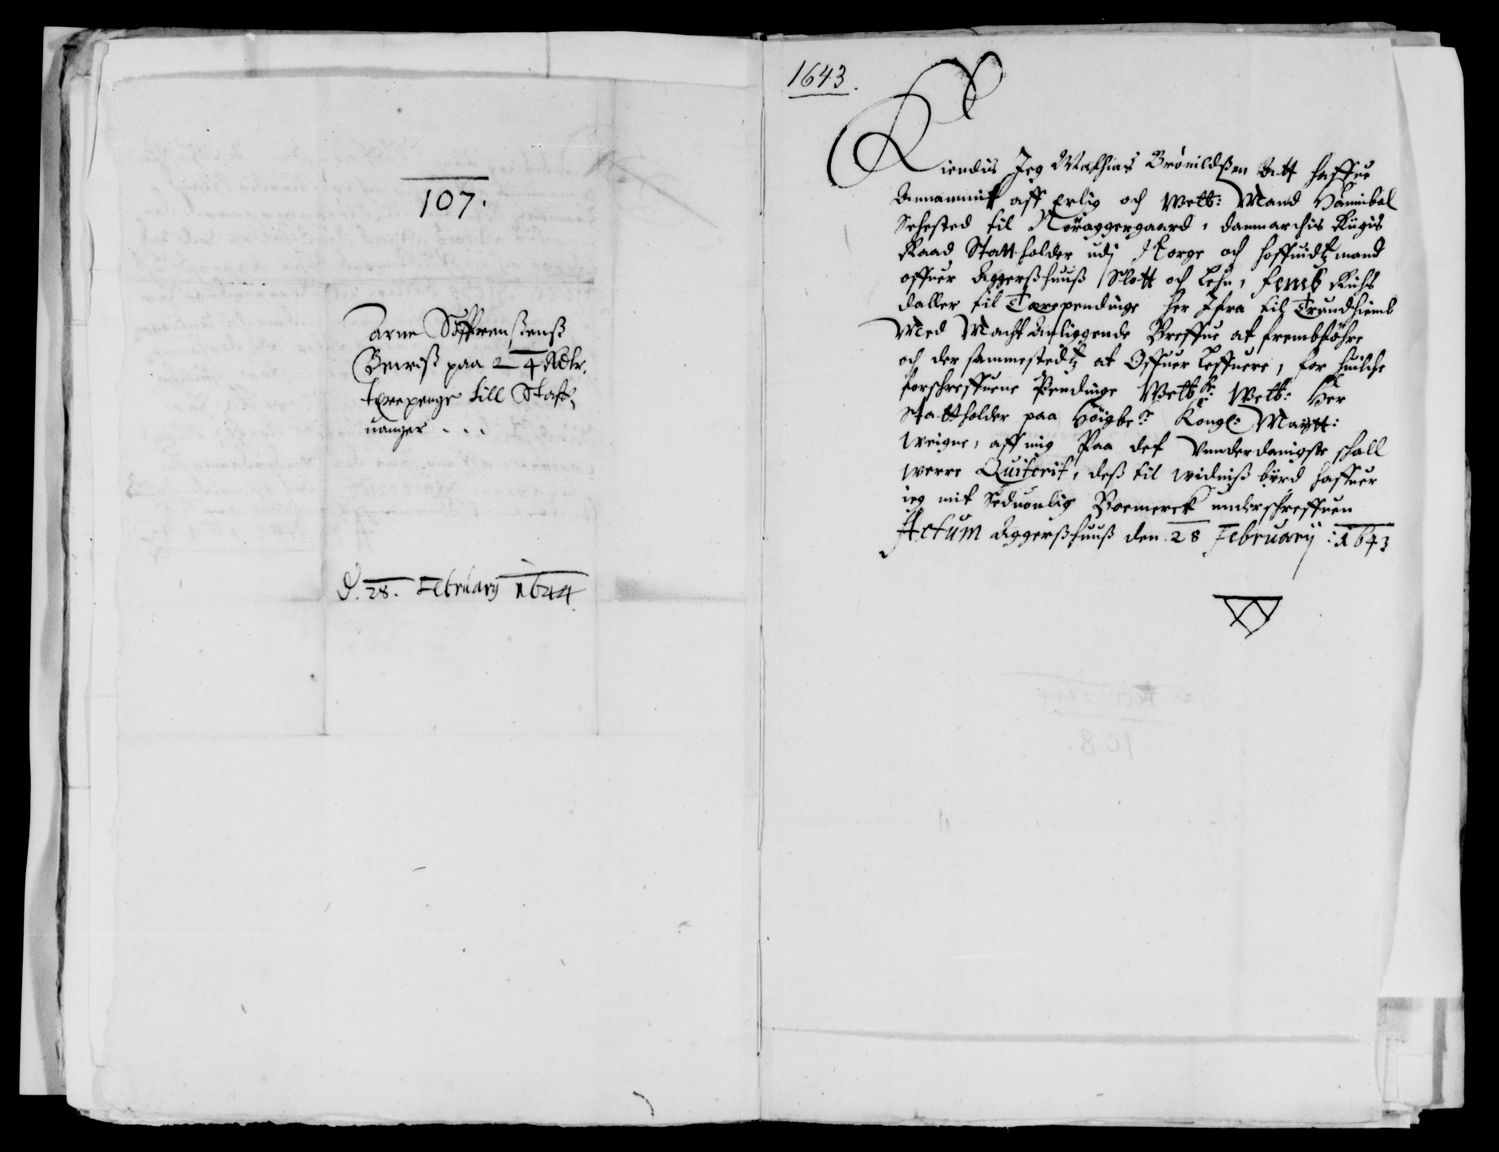 107.
Arne Søffrenßenß
Beuiß paa 24 Rdlr.
terepenge till Staff-
uanger ...
D. 28. February 1644
1643.
Kiendis Jeg Mathias Brönildßen Att haffue
Annammit aff Erlig och Welb: Mand Hannibal
Sehested til Nöraggergaard, danmarchis Rigis
Raad Stattholder udj Norge och hoffuidtzmand
offuer Aggerßhuuß Slott och Lehn, femb Richs
daller til Tærependinge her Ifra til Trundhiemb
Med Macht Anliggende Breffue at frembföhre
och der sammestedtz at Offuer Leffuere, for huilche
forschreffuene Pendinge Welb: Welb: Her
Stattholder paa Höigbe: Kongl: Maytt:
Weigne, aff mig Paa det Vnderdanigste schall
werre Quiterit, deß til widniß byrd haffuer
ieg mit Seduonlig Boemerck underschreffuen
Actum Aggerßhuuß den 28 Februarij: 1643
108.